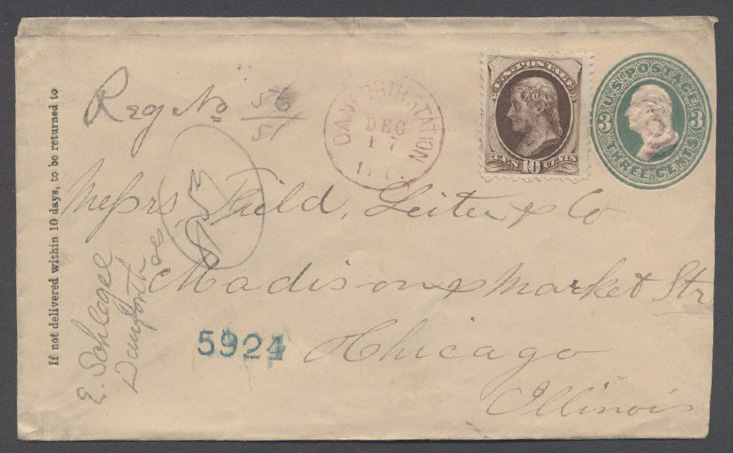 Reg No 56
51
DANFORTH STATION
DEC
17
ILL.
U.S. POSTAGE
TEN 10 CENTS
U.S. POSTAGE
3 3
THREE CENTS
Messrs Field, Leiter & Co
Madison & Market Str
Chicago
Illinois
5924
If not delivered within 10 days, to be returned to
E. Schlegel
Danforth